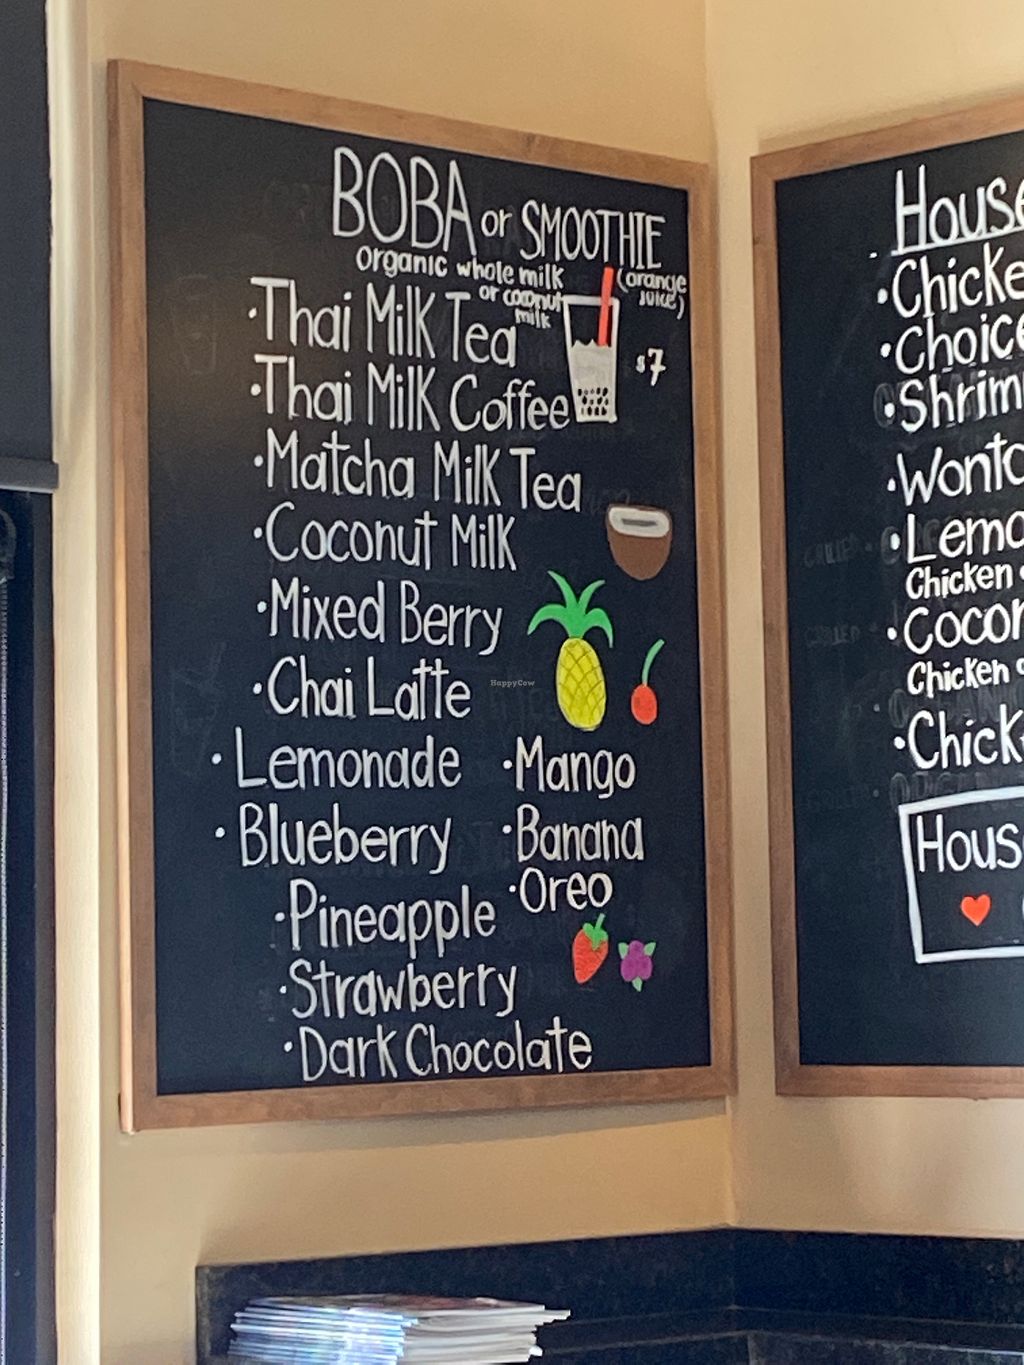 BOBA or SMOOTHIE
organic whole milk
or coconut
milk
(orange
juice)
•Thai Milk Tea
$7
•Thai Milk Coffee
•Matcha Milk Tea
•Coconut Milk
•Mixed Berry
•Chai Latte
HappyCow
•Lemonade
•Mango
•Blueberry
•Banana
•Oreo
•Pineapple
•Strawberry
•Dark Chocolate
House
•Chicke
•Choice
•Shrim
•Wonto
•Lemo
Chicken
•Cocon
Chicken
•Chick
House